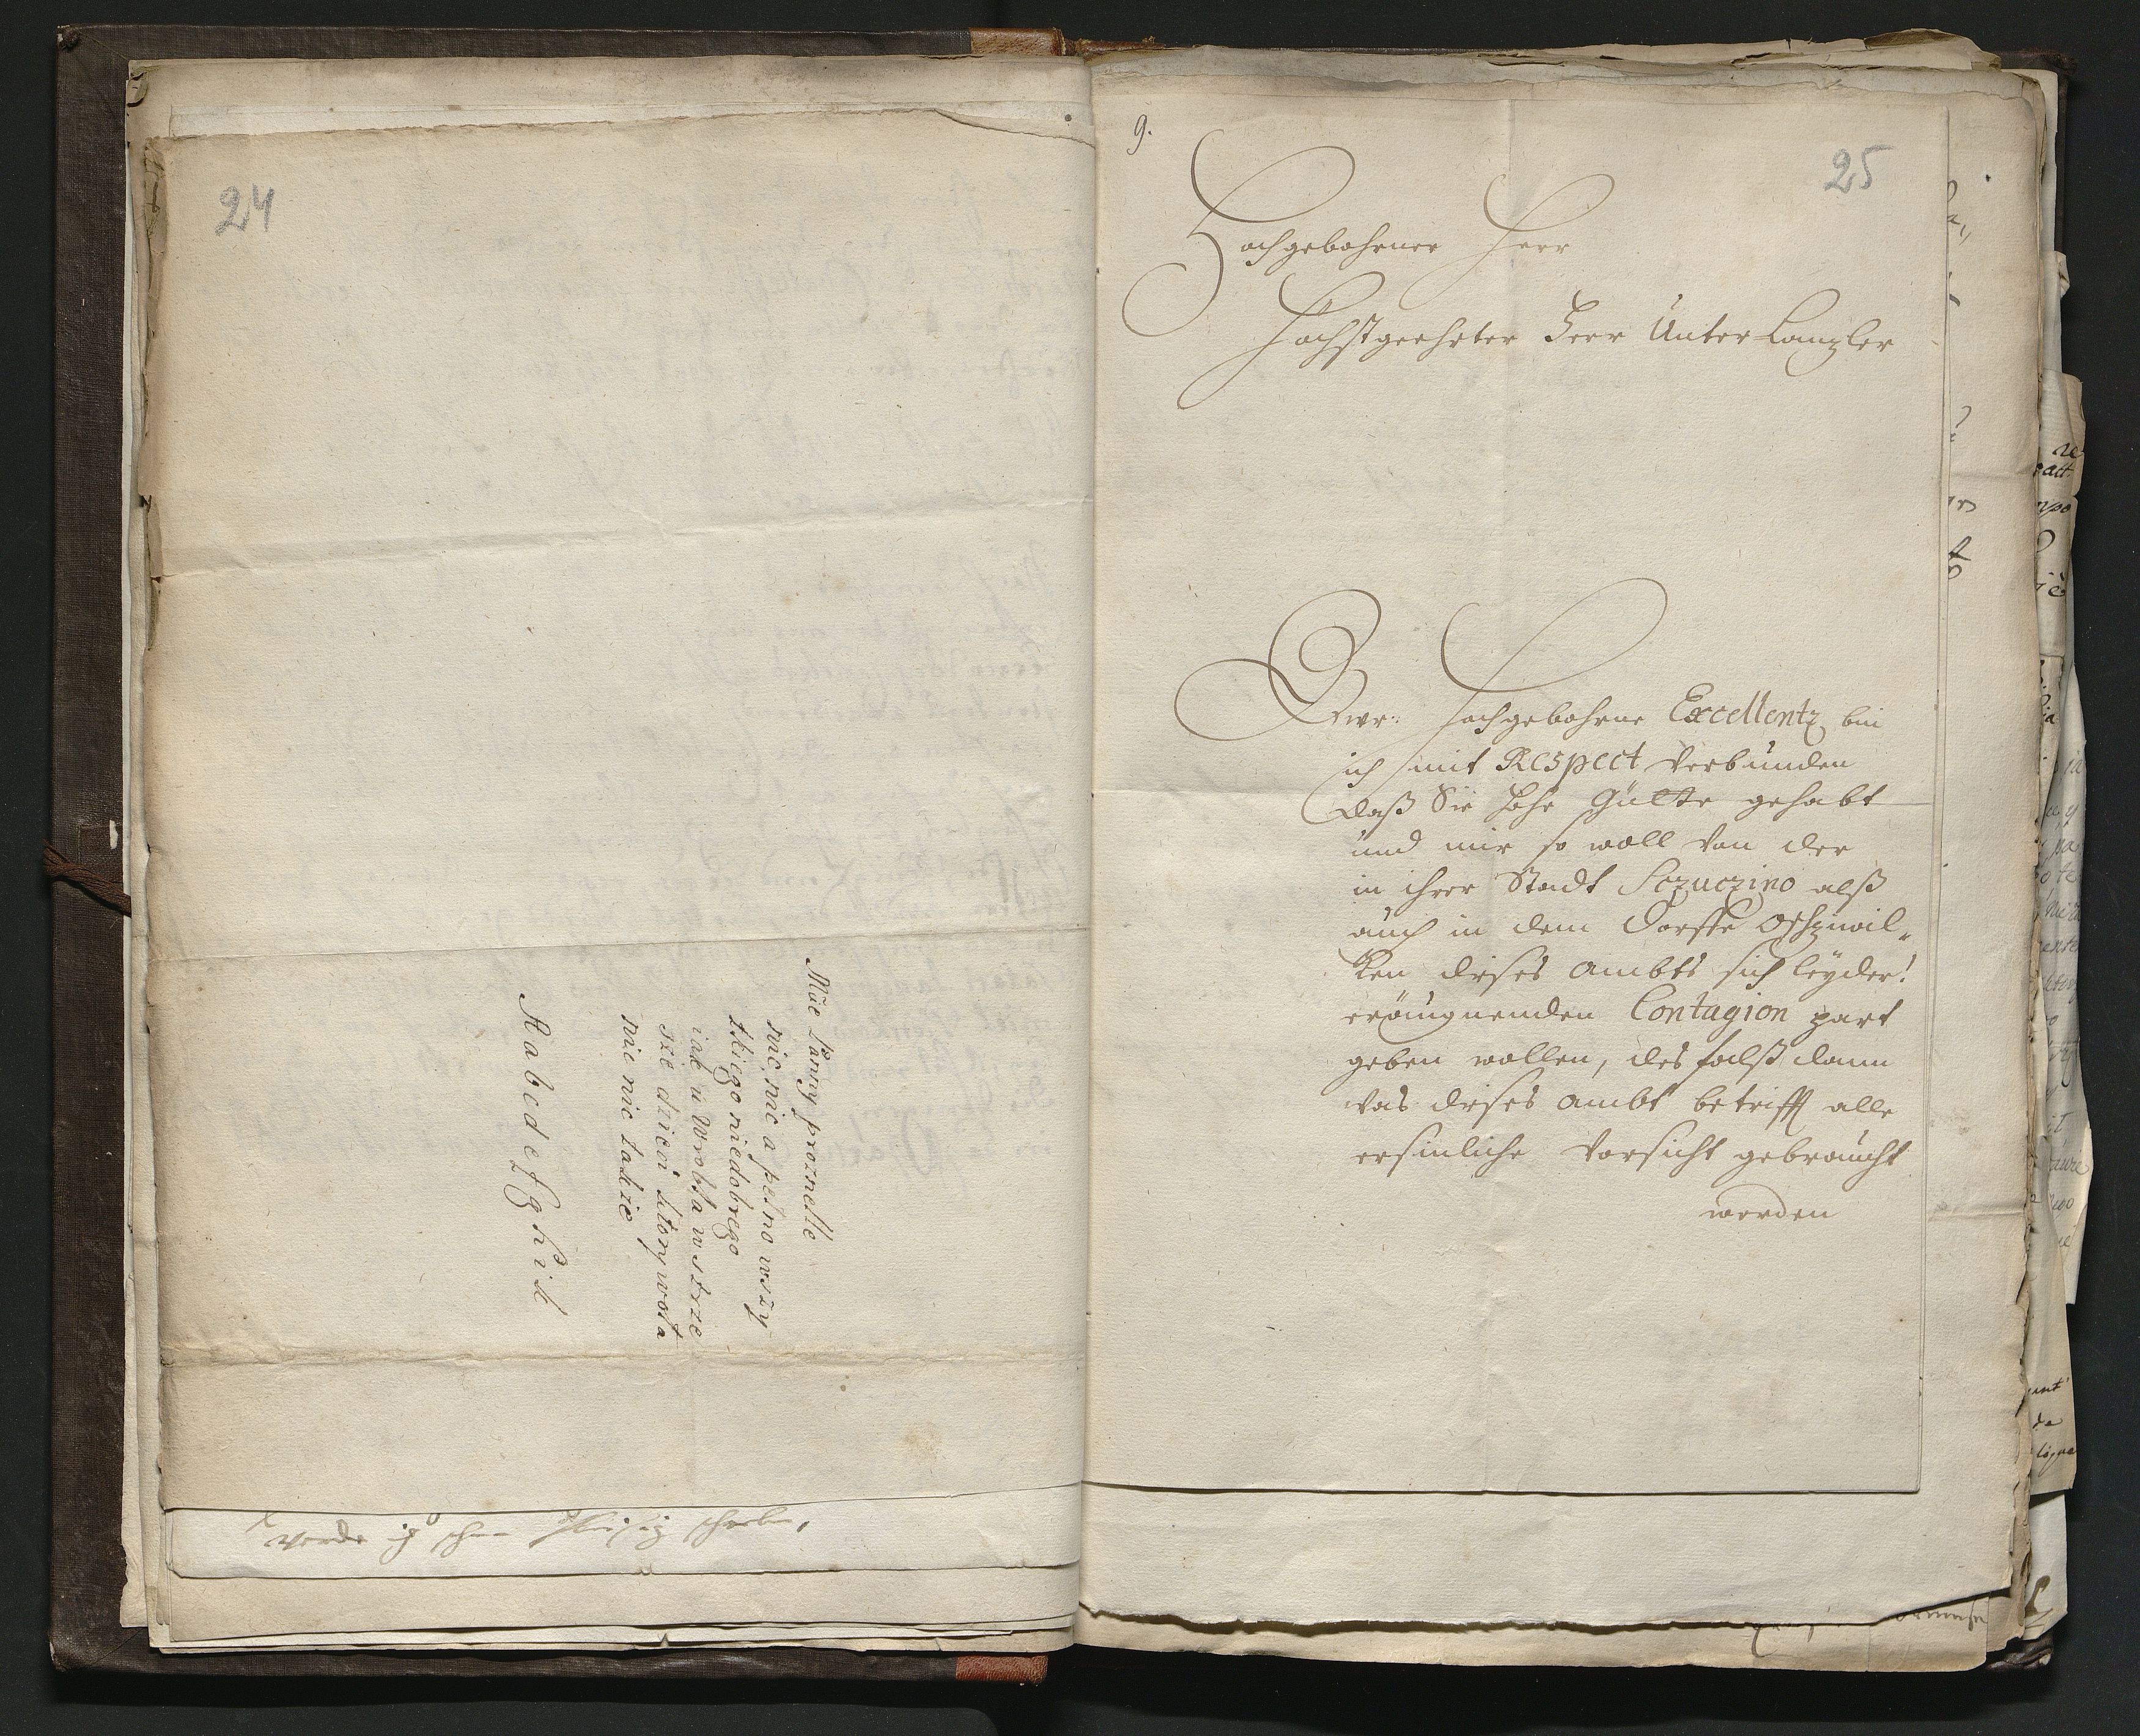 24
Může Panny proznelle
nic, nic a pełno wszy
tkiego niedobrego
iak u Wrobla w strze
sze dzieci ktory wola
nic nic takze
A a b c d e f g h i k
werde ich schon fleisig
9.
25
Hochgebohrner Herr
Höchstgeehrter Herr Unter Canzler
Ewr: Hochgebohrne Excellentz bin
ich mit Respect verbunden
daß Sie hohe Gütte gehabt
und mir so woll von der
in ihrer Stadt Sczuczino alß
auch in dem Dorffe
ken dieses Ambts sich leyder!
eräugnenden Contagion part
geben wollen, des falß dann
was dieses Ambt betrifft alle
ersinliche Vorsicht gebraucht
worden